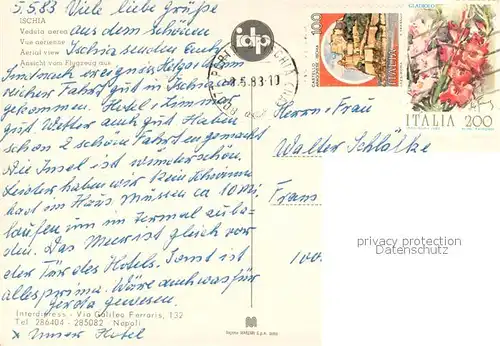 5.5.83 Viele liebe grüße
ISCHIA
Veduta aerea
Vue aérienne
Aerial view
Ansicht vom Flugzeug aus
aus dem schönen
Ischia senden Euch
reicher Fahrt gut in Ischia an
gekommen. Hotel + Zimmer
gut. Wetter auch gut. Haben
schon 2 schöne Fahrten gemacht
Die Insel ist wunderschön.
Leider haben wir kein Schwimm
bad im Haus. Müssen ca 10 Min.
laufen um im Termal zu ba-
den. Das Meer ist gleich vor
der Tür des Hotels. Sonst ist
alles prima. Wäre auch was für
Gerda gewesen.
Interdipress - Via Galileo Ferraris, 132
Tel 286404 - 285082 Napoli
x Unser Hotel
idp
-8.5.83-10
100
ITALIA
GLADIOLO
ITALIA 200
Herrn + Frau
Walter Schlötke
privacy protection
Datenschutz